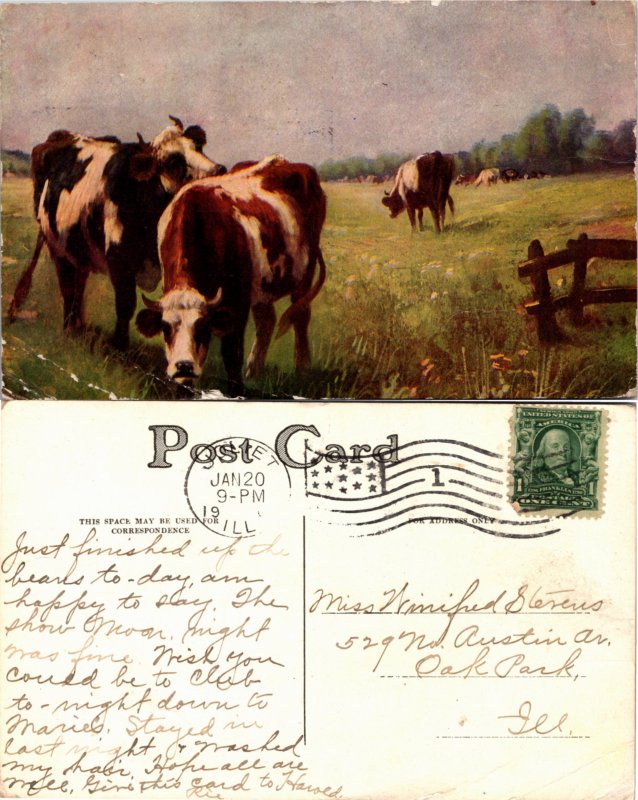 Post Card
JAN 20
9-PM
19
ILL
1
UNITED STATES OF AMERICA
1 1
ONE CENT
THIS SPACE MAY BE USED FOR
CORRESPONDENCE
FOR ADDRESS ONLY
Just finished up the
beans to-day, am
happy to say. The
show Mon. night
was fine. Wish you
could be to Club
to-night down to
Maries. Stayed in
last night, & washed
my hair. Hope all are
well, Give this card to Harold
Miss Winifred Stevens
529 No. Austin Av.
Oak Park,
Ill.